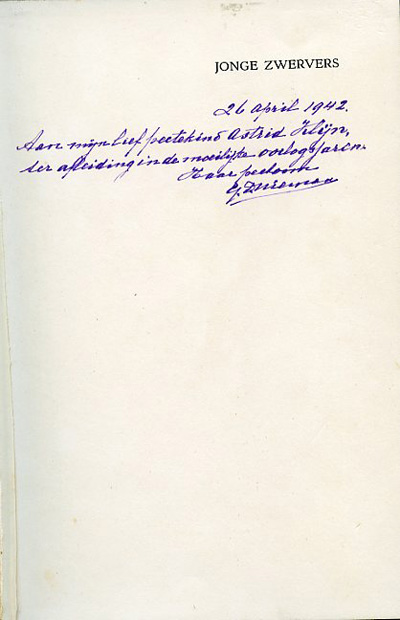 JONGE ZWERVERS
26 April 1942.
Aan mijn lief peetekind Astrid Klijn,
ter afleiding in de moeilijke oorlogsjaren.
Haar peetoom